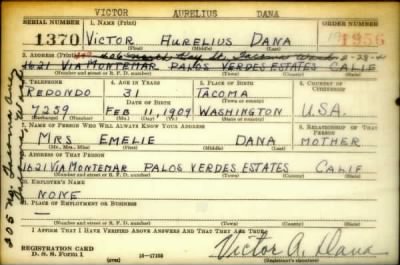 VICTOR AURELIUS DANA
SERIAL NUMBER 1. NAME (Print) ORDER NUMBER
1370 VICTOR AURELIUS DANA 1956
(First) (Middle) (Last)
2. ADDRESS (Print)
1621 VIA MONTEMAR PALOS VERDES ESTATES CALIF
(Number and street or R. F. D. number) (Town) (County) (State)
3. TELEPHONE 4. AGE IN YEARS 5. PLACE OF BIRTH 6. COUNTRY OF CITIZENSHIP
REDONDO 31 TACOMA
DATE OF BIRTH
7259 FEB 11, 1909 WASHINGTON U.S.A.
7. NAME OF PERSON WHO WILL ALWAYS KNOW YOUR ADDRESS 8. RELATIONSHIP OF THAT PERSON
MRS EMELIE DANA MOTHER
(Mr., Mrs., Miss) (First) (Middle) (Last)
9. ADDRESS OF THAT PERSON
1621 VIA MONTEMAR PALOS VERDES ESTATES CALIF
(Number and street or R. F. D. number) (Town) (County) (State)
10. EMPLOYER'S NAME
NONE
11. PLACE OF EMPLOYMENT OR BUSINESS
(Number and street or R. F. D. number) (Town) (County) (State)
I AFFIRM THAT I HAVE VERIFIED ABOVE ANSWERS AND THAT THEY ARE TRUE.
REGISTRATION CARD
D. S. S. Form 1 16-17105
Victor A. Dana
(Registrant's signature)